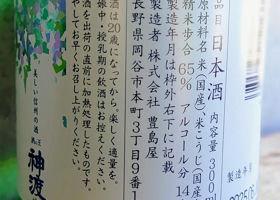 品目 日本酒 内容量300
原材料名 米(国産)、米こうじ(国産
精米歩合 65% アルコール分14
製造年月は枠外右下に記載
製造者 株式会社 豊島屋
長野県岡谷市本町3丁目9番1
酒は20歳になってから。楽しく適量を。
娠中・授乳期の飲酒はお控えください。
酒を出荷の直前に加熱処理したものです。
やしてお早めにお召し上がりください。
美しい信州の酒
神渡
製造年月
2025.06